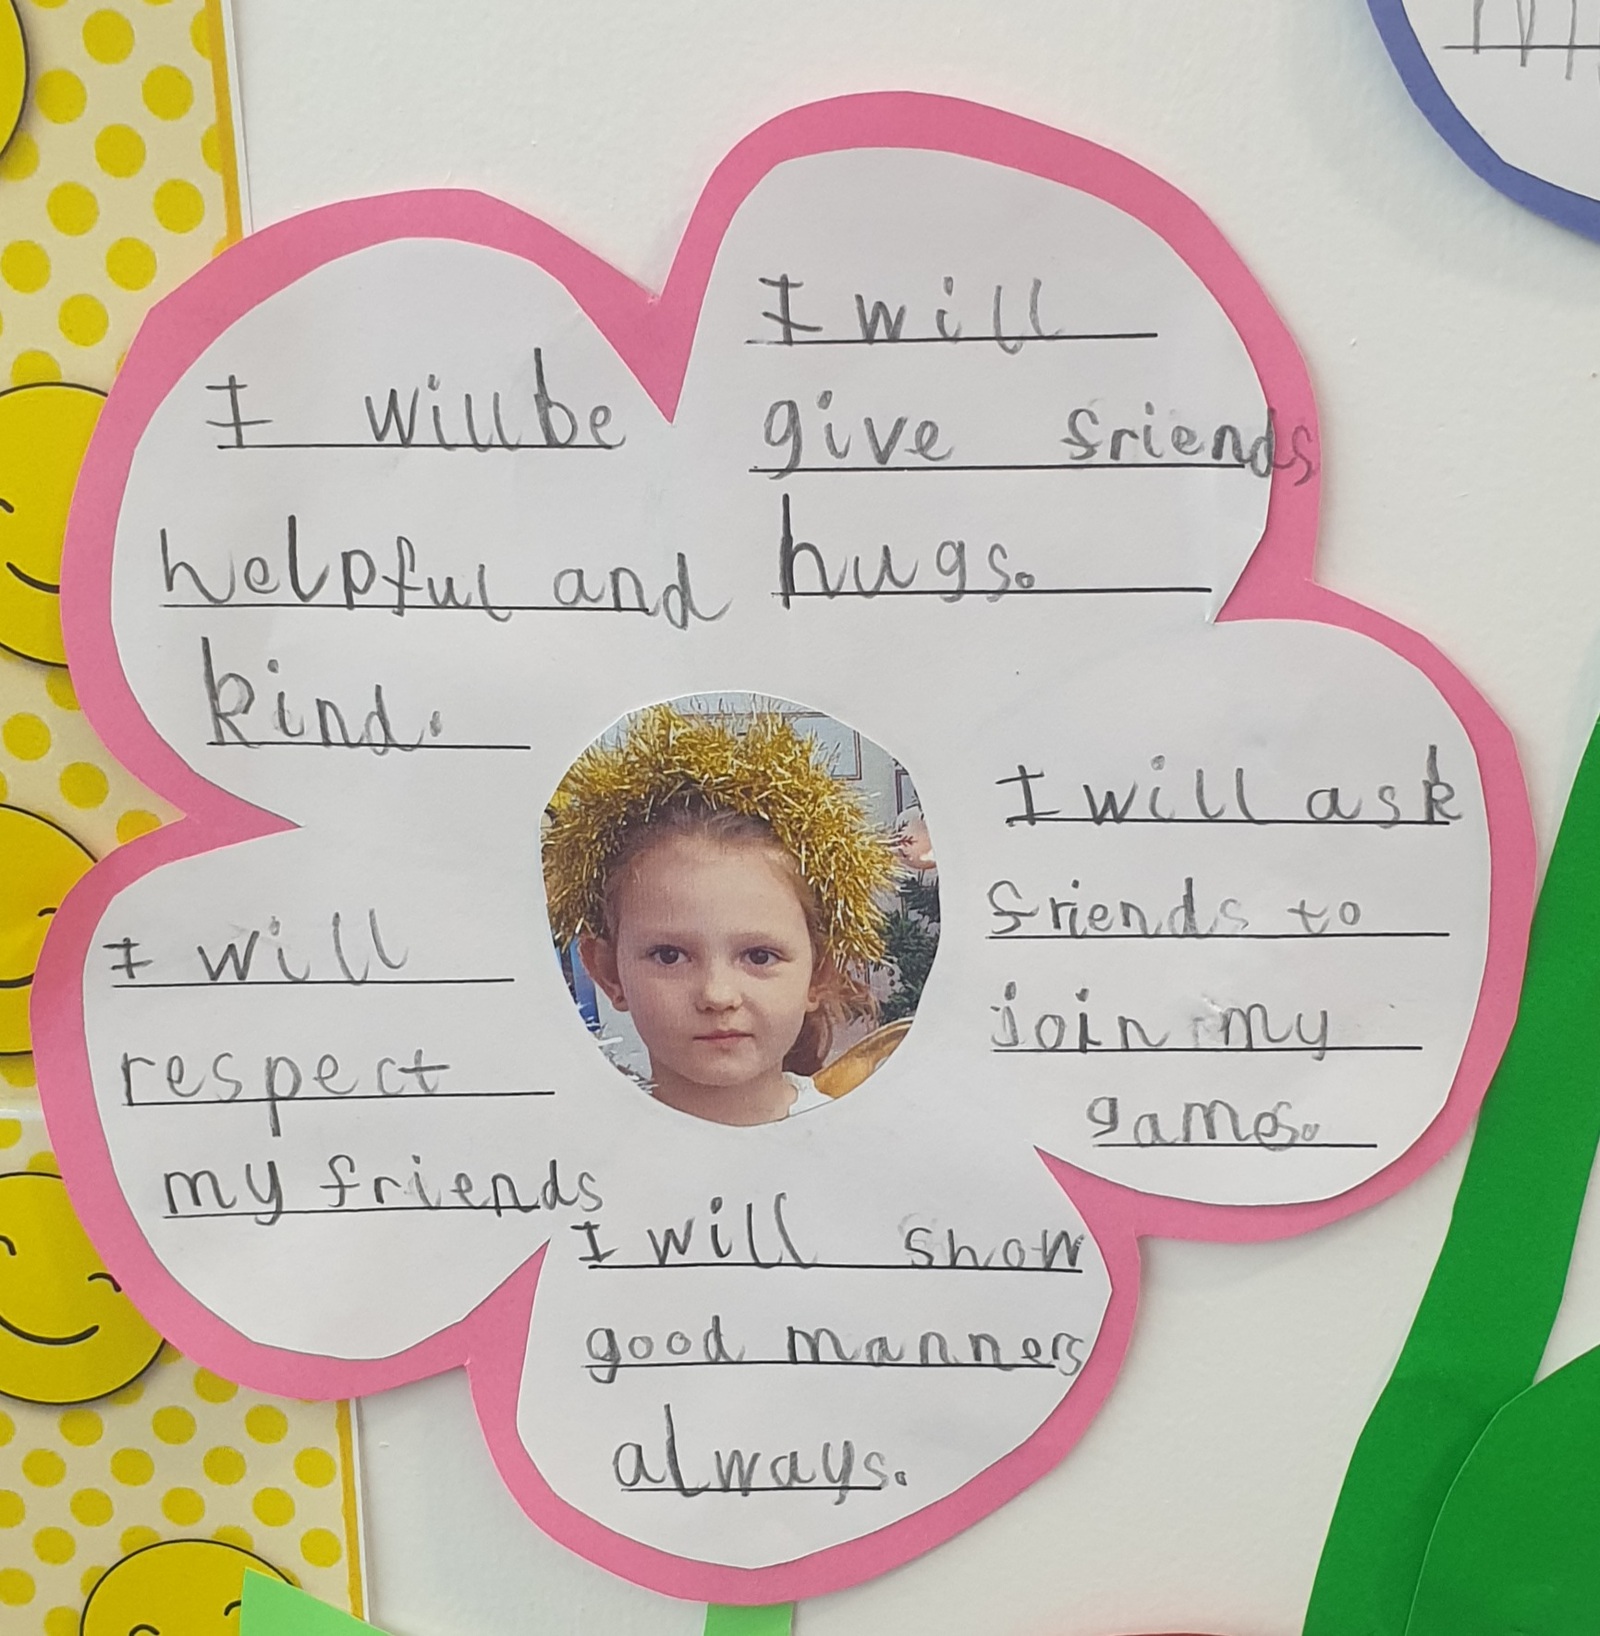 I will be
helpful and
kind.
I will
give friends
hugs.
I will ask
friends to
join my
games.
I will show
good manners
always.
I will
respect
my friends